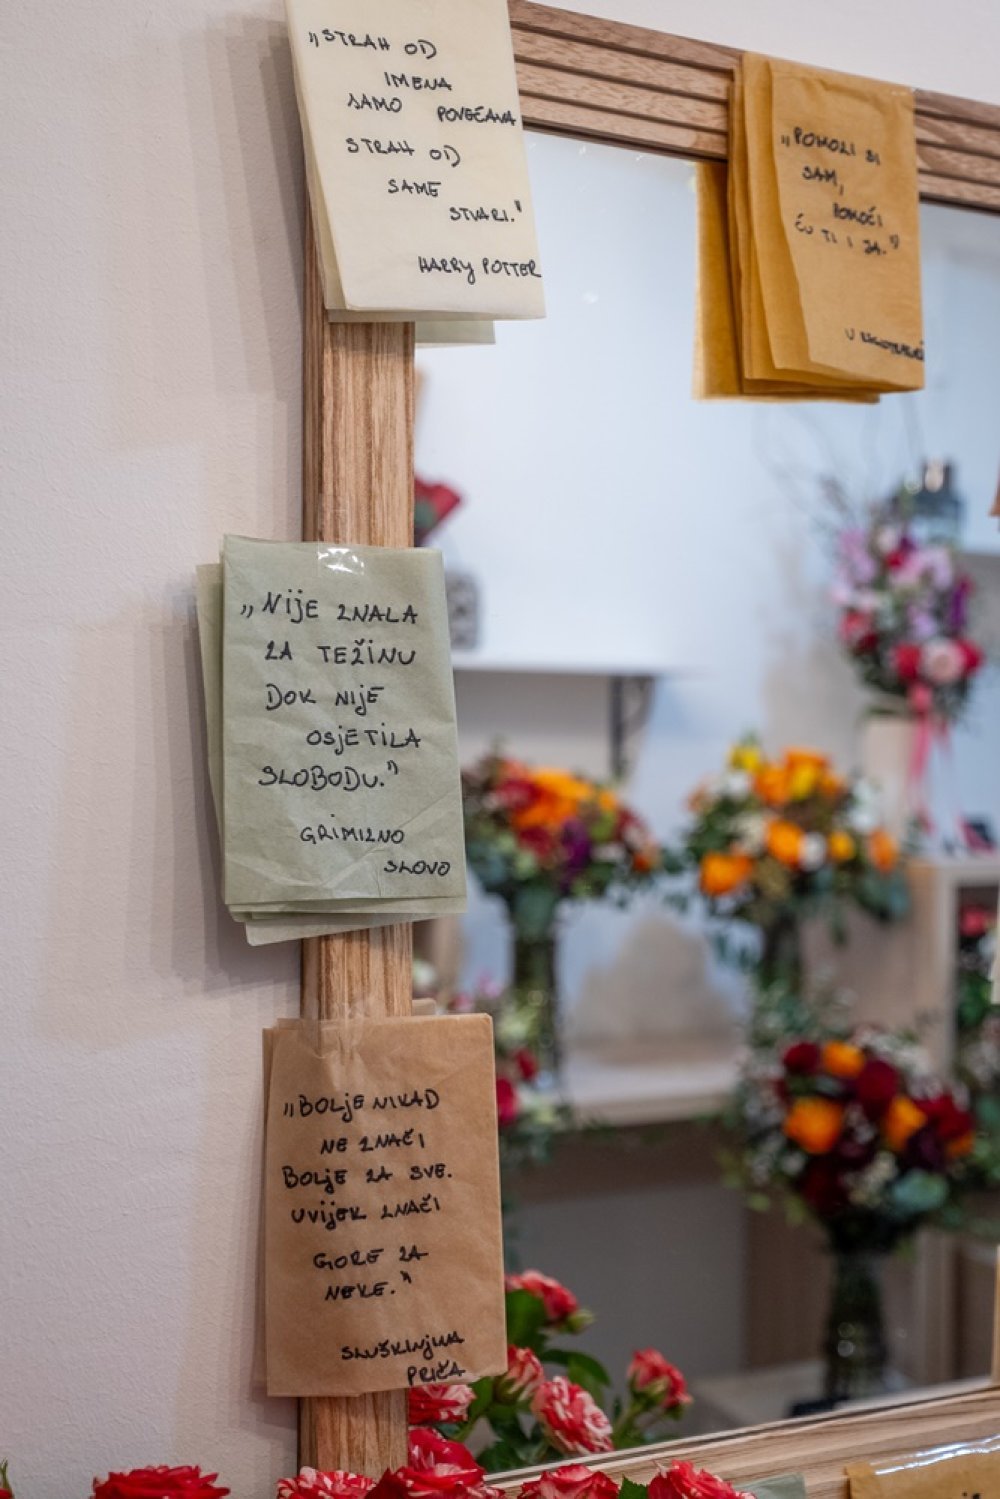 „STRAH OD
IMENA
SAMO POVEĆAVA
STRAH OD
SAME
STVARI."
HARRY POTTER
„POMOZI SI
SAM,
POMOĆI
ĆU TI I JA."
U
„NIJE ZNALA
ZA TEŽINU
DOK NIJE
OSJETILA
SLOBODU."
GRIMIZNO
SLOVO
„BOLJE NIKAD
NE ZNAČI
BOLJE ZA SVE.
UVIJEK ZNAČI
GORE ZA
NEKE."
SLUŠKINJINA
PRIČA